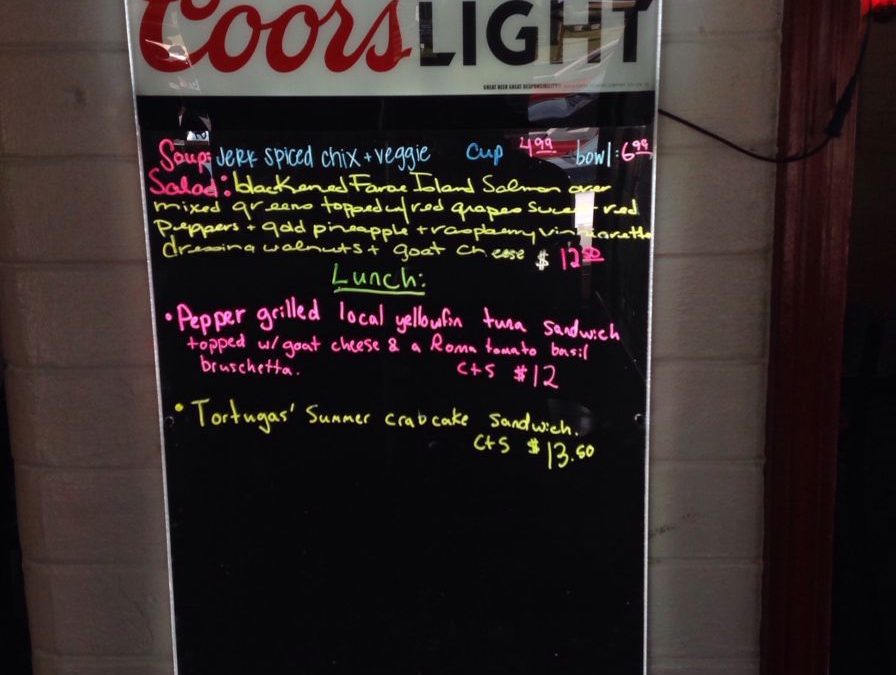 Coors LIGHT
GREAT BEER GREAT RESPONSIBILITY
Soup: Jerk spiced chix + veggie cup 4.99 bowl: 6.99
Salad: blackened Faroe Island Salmon over
mixed greens topped w/ red grapes sweet red
peppers + gold pineapple + raspberry vinniarette
dressing walnuts + goat cheese $ 12.50
Lunch:
• Pepper grilled local yellowfin tuna sandwich
topped w/ goat cheese & a Roma tomato basil
bruschetta. C+S $12
• Tortugas' Summer crabcake sandwich.
C+S $13.50